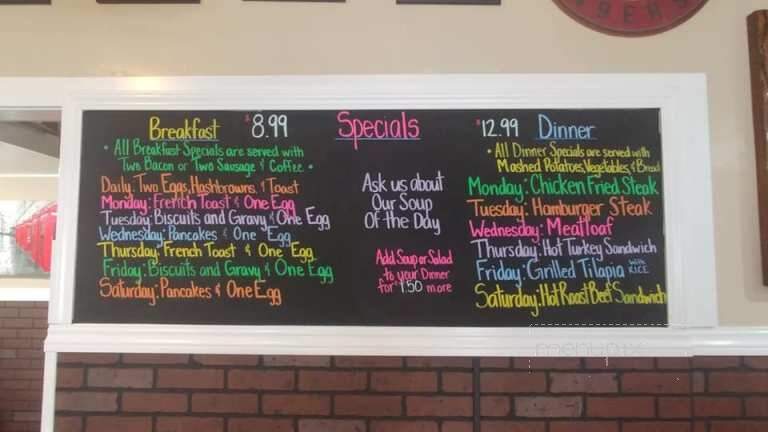 49ERS
Breakfast $8.99
• All Breakfast Specials are served with
Two Bacon or Two Sausage & Coffee •
Daily: Two Eggs, Hashbrowns, & Toast
Monday: French Toast & One Egg
Tuesday: Biscuits and Gravy & One Egg
Wednesday: Pancakes & One Egg
Thursday: French Toast & One Egg
Friday: Biscuits and Gravy & One Egg
Saturday: Pancakes & One Egg
Specials
Ask us about
Our Soup
Of the Day
Add Soup or Salad
to your Dinner
for $1.50 more
$12.99 Dinner
• All Dinner Specials are served with
Mashed Potatoes, Vegetables, & Bread
Monday: Chicken Fried Steak
Tuesday: Hamburger Steak
Wednesday: Meatloaf
Thursday: Hot Turkey Sandwich
Friday: Grilled Tilapia with RICE
Saturday: Hot Roast Beef Sandwich
menupix